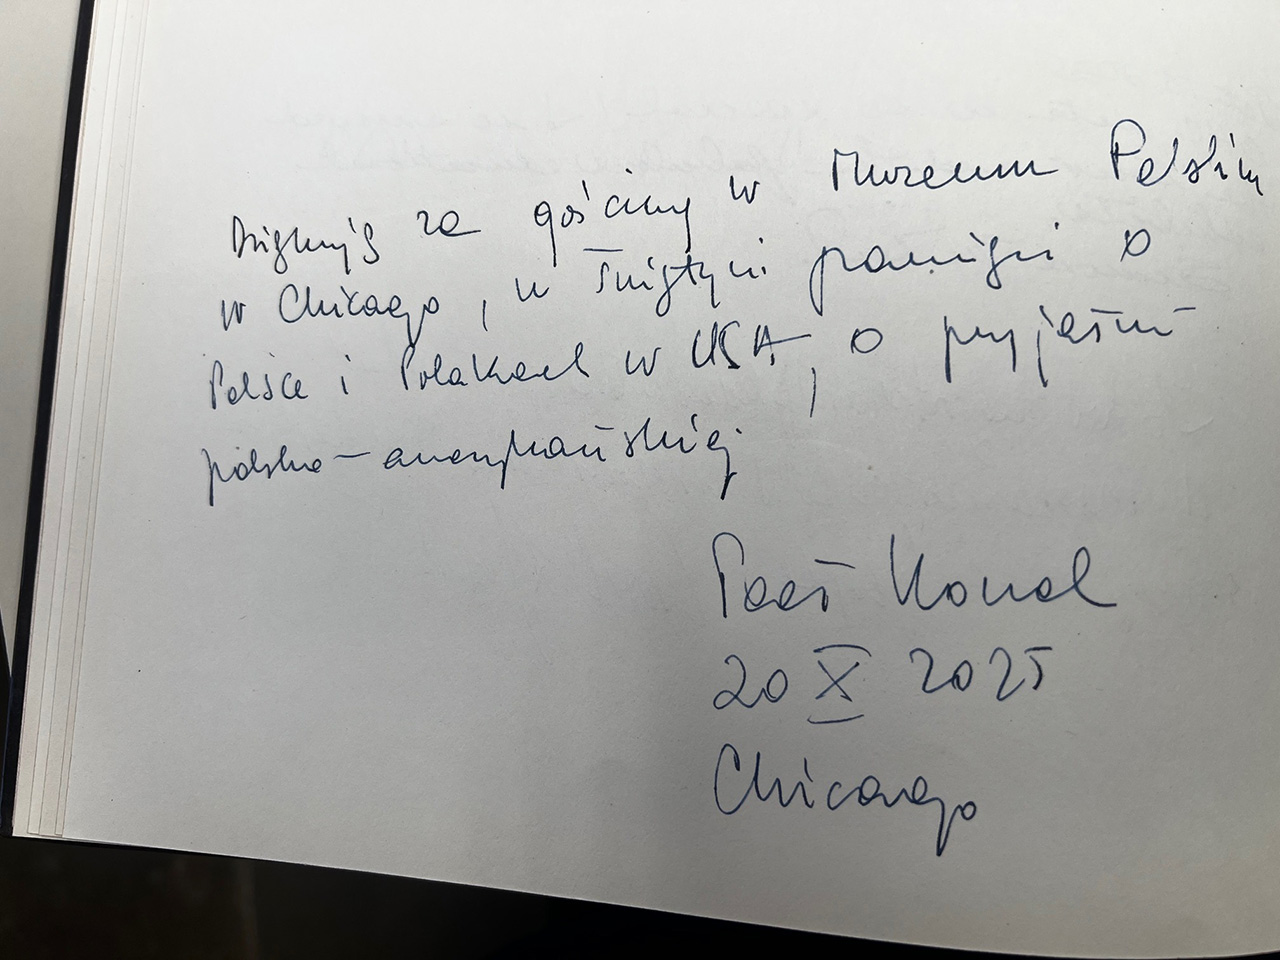 Dziękuję za gościnę w Muzeum Polskim
w Chicago, w świątyni pamięci o
Polsce i Polakach w USA, o przyjaźni
polsko-amerykańskiej
Kowal
20 X 2025
Chicago